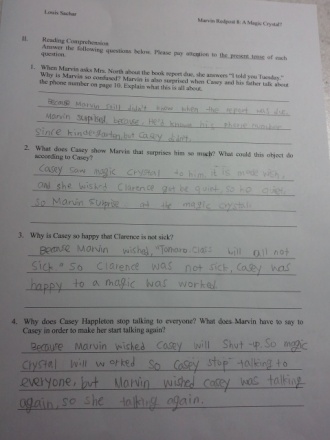 Louis Sachar
Marvin Redpost 8: A Magic Crystal?
B. Reading Comprehension
Answer the following questions below. Please pay attention to the present tense of each
question.
1. When Marvin asks Mrs. North about the book report due, she answers "I told you Tuesday."
Why is Marvin so confused? Marvin is also surprised when Casey and his father talk about
the phone number on page 10. Explain what this is all about.
Because Marvin still didn't know when the report was due.
Marvin surprised because, He's known his phone number
since kindergarten but Casey didn't.
2. What does Casey show Marvin that surprises him so much? What could this object do
according to Casey?
Casey saw magic crystal to him, it is make wish,
and she wished Clarence got be quiet, so he does.
so Marvin surprise at the magic crystal.
3. Why is Casey so happy that Clarence is not sick?
Because Marvin wished, "Tomorrow Class will not
sick" so Clarence was not sick, Casey was
happy to a magic was worked.
4. Why does Casey Happleton stop talking to everyone? What does Marvin have to say to
Casey in order to make her start talking again?
Because Marvin wished Casey will Shut-up So magic
Crystal will worked so Casey stop talking to
everyone, but Marvin wished Casey was talking
again, so she talking again.